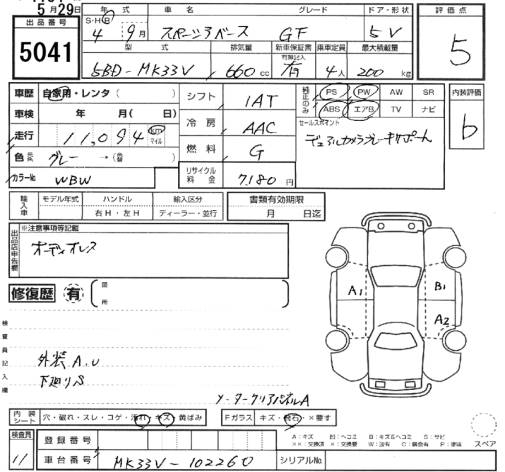 5月29日
出品番号 5041
S・H・R 年式 4年 9月
車名 スペーシアベース
グレード GF
ドア・形状 5V
評価点 5
型式 5BD-MK33V
排気量 660cc
新車保証書 有無記入 有
乗車定員 4人
最大積載量 200kg
車歴 自家用・レンタ( )
車検 年 月( )
走行 11,094 km マイル
色 グレー→( )
カラーNo WBW
シフト IAT
冷房 AAC
燃料 G
リサイクル料金 7,180円
純正のみ PS PW AW SR
ABS エアB TV ナビ
セールスポイント
デュアルカメラブレーキサポート
内装評価 b
輸入車 モデル年式 ハンドル 輸入区分
右H・左H ディーラー・並行
書類有効期限
月 日迄
出品店申告欄 ※注意事項等記載
オーディオレス
修復歴 有 箇所
検査員記入欄
外装A,U
下廻りS
メータークリアパネルA
A1 B1
A2
内装シート 穴・破れ・スレ・コゲ・汚れ・キズ・黄ばみ
Fガラス キズ・飛石・×要す
A:キズ U:ヘコミ B:キズ&ヘコミ S:サビ
スペア
検査員
登録番号
車台番号 MK33V-102260
シリアルNo